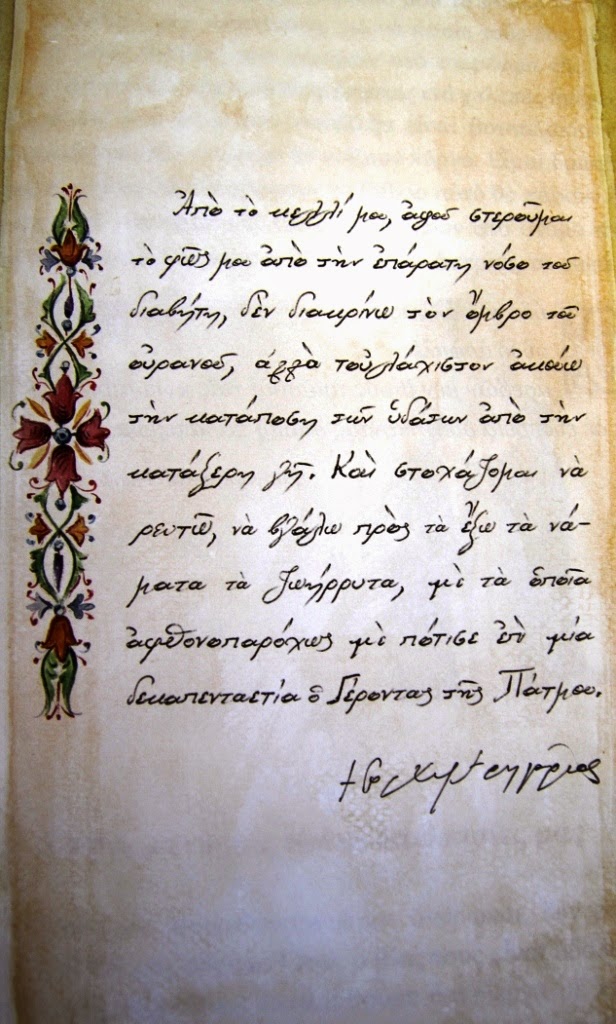 Ἀπὸ τὸ κελλί μου, ἀφοῦ στεροῦμαι
τὸ φῶς μου ἀπὸ τὴν ἐπάρατη νόσο τοῦ
διαβήτη, δὲν διακρίνω τὸν ὄμβρο τοῦ
οὐρανοῦ, ἀλλὰ τοὐλάχιστον ἀκούω
τὴν κατάποση τῶν ὑδάτων ἀπὸ τὴν
κατάξερη γῆ. Καὶ στοχάζομαι νὰ
ρευτῶ, νὰ βγάλω πρὸς τὰ ἔξω τὰ νά-
ματα τὰ ζωήρρυτα, μὲ τὰ ὁποῖα
ἀφθονοπαρόχως μὲ πότισε ἐπὶ μία
δεκαπενταετία ὁ Γέροντας τῆς Πάτμου.